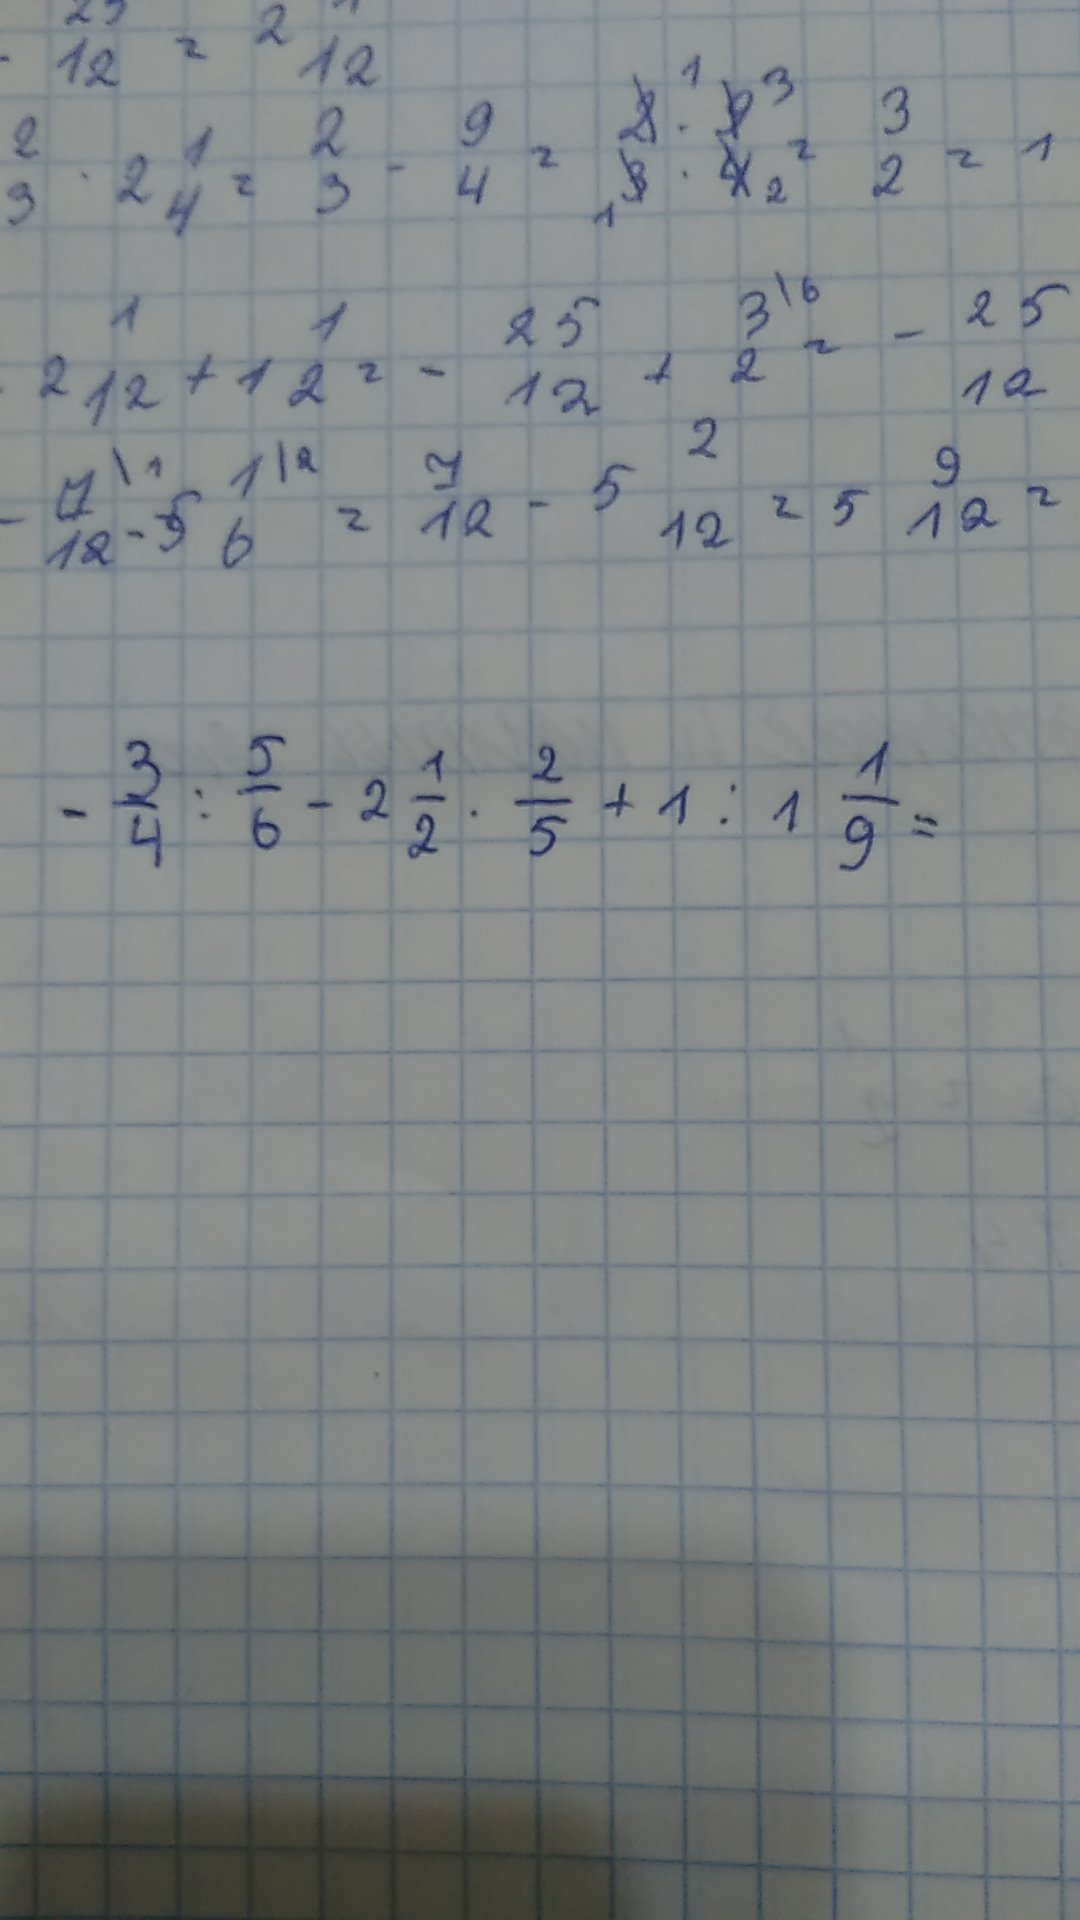 - 25/12 = 2 1/12
2/3 · 2 1/4 = 2/3 · 9/4 = 2 · 9 / 3 · 4 = 3/2 = 1
- 2 1/12 + 1 1/2 = - 25/12 + 3\6/2 = - 25/12
- 7\1/12 - 5 1\2/6 = 7/12 - 5 2/12 = 5 9/12 =
- 3/4 : 5/6 - 2 1/2 · 2/5 + 1 : 1 1/9 =